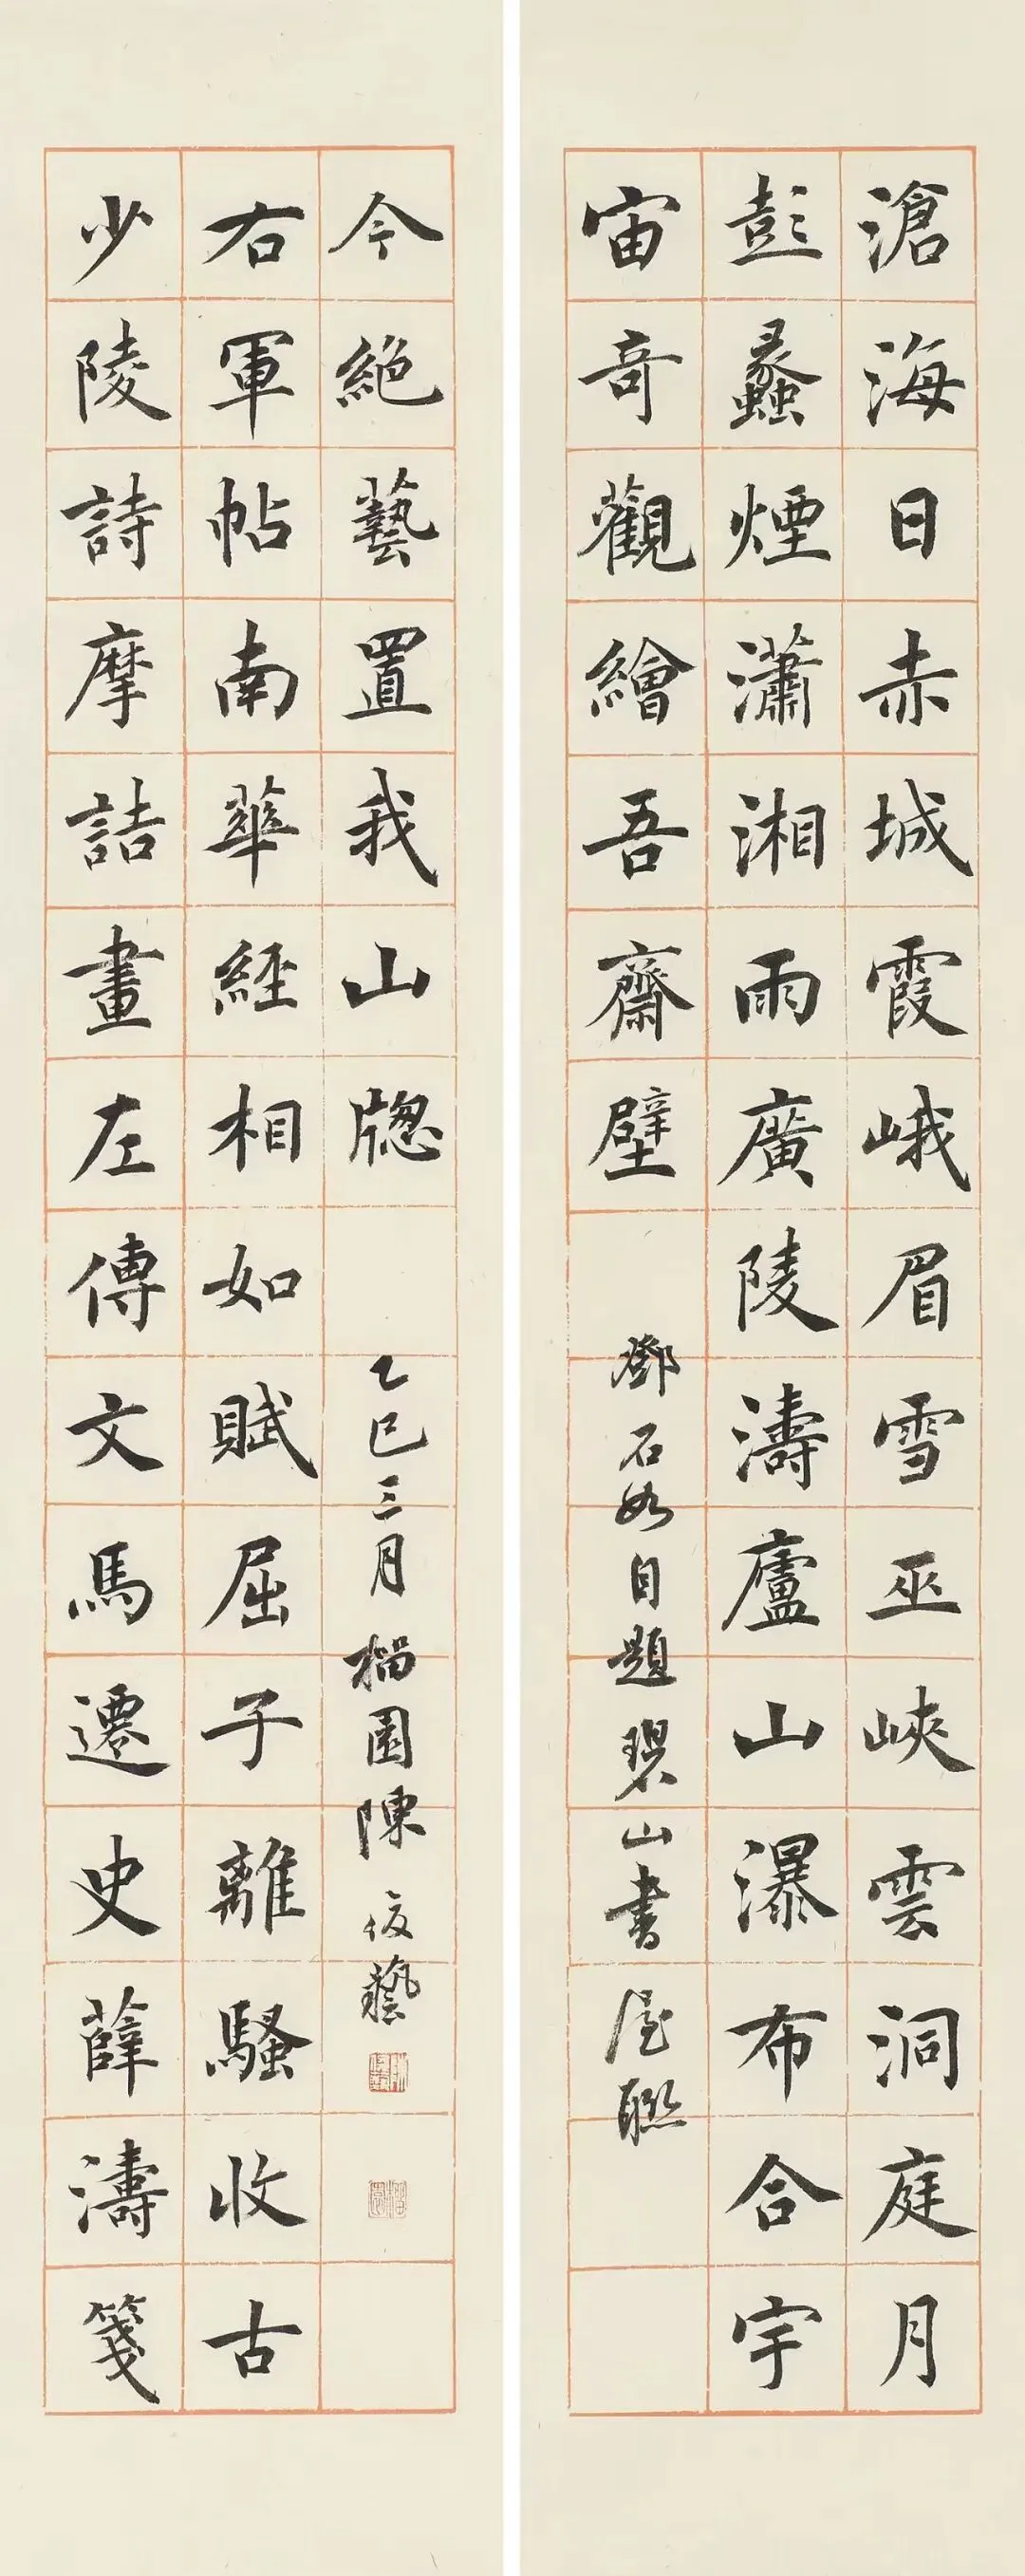 滄海日赤城霞峨眉雪巫峽雲洞庭月
彭蠡煙瀟湘雨廣陵濤廬山瀑布合宇
宙奇觀繪吾齋壁
鄧石如自題碧山書屋聯
少陵詩摩詰畫左傳文馬遷史薛濤箋
右軍帖南華經相如賦屈子離騷收古
今絶藝置我山牎
乙巳三月榴園陳藝